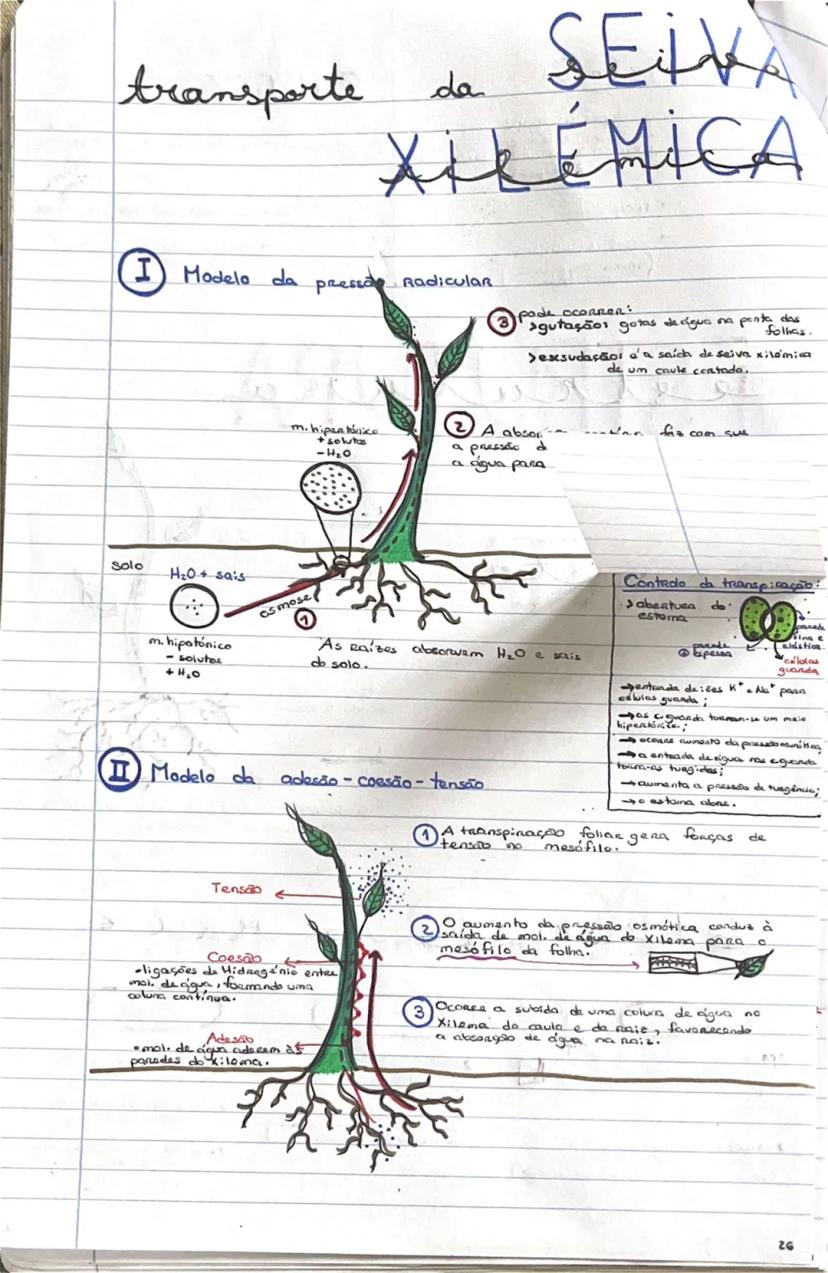 transporte da SEIVA
XILÉMICA
I Modelo da pressão Radicular
3 pode ocorrer:
>gutação: gotas de água na ponta das
folhas.
>exsudação: é a saída de seiva xilémica
de um caule cortado.
m. hipertónico
+ solutos
- H₂O
2 A absor faz com que
a pressão d
a água para
solo
H₂O + sais
osmose
1
m. hipotónico
- solutos
+ H₂O
As raízes absorvem H₂O e sais
do solo.
Controlo da transpiração:
>abertura do
estoma
parede
fina e
elástica
parede
espessa
células
guarda
→entrada de iões K⁺ e Na⁺ para
células guarda;
→as c. guarda tornam-se um meio
hipertónico;
→ocorre aumento da pressão osmótica;
→a entrada de água nas c. guarda
torna-as turgidas;
→aumenta a pressão de turgência;
→o estoma abre.
II Modelo da adesão-coesão-tensão
1 A transpiração foliar gera forças de
tensão no mesófilo.
Tensão
2 O aumento da pressão osmótica conduz à
saída de mol. de água do xilema para o
mesófilo da folha.
Coesão
•ligações de Hidrogénio entre
mol. de água, formando uma
coluna contínua.
3 Ocorre a subida de uma coluna de água no
xilema do caule e da raiz, favorecendo
a absorção de água na raiz.
Adesão
•mol. de água aderem às
paredes do xilema.
26